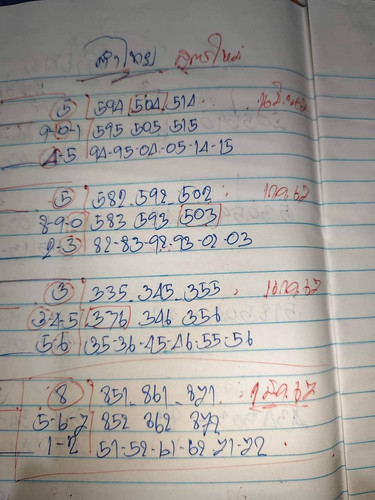 สูตรใหม่
5 594 504 514
9-0-1 595 505 515
4-5 94-95-04-05-14-15
5 582 592 502 1 ก.ค. 67
8-9-0 583 593 503
2-3 82-83-92-93-02-03
3 335 345 355 16 ก.ค. 67
3-4-5 336 346 356
5-6 35-36-45-46-55-56
8 851 861 871
5-6-7 852 862 872
1-2 51-52-61-62-71-72